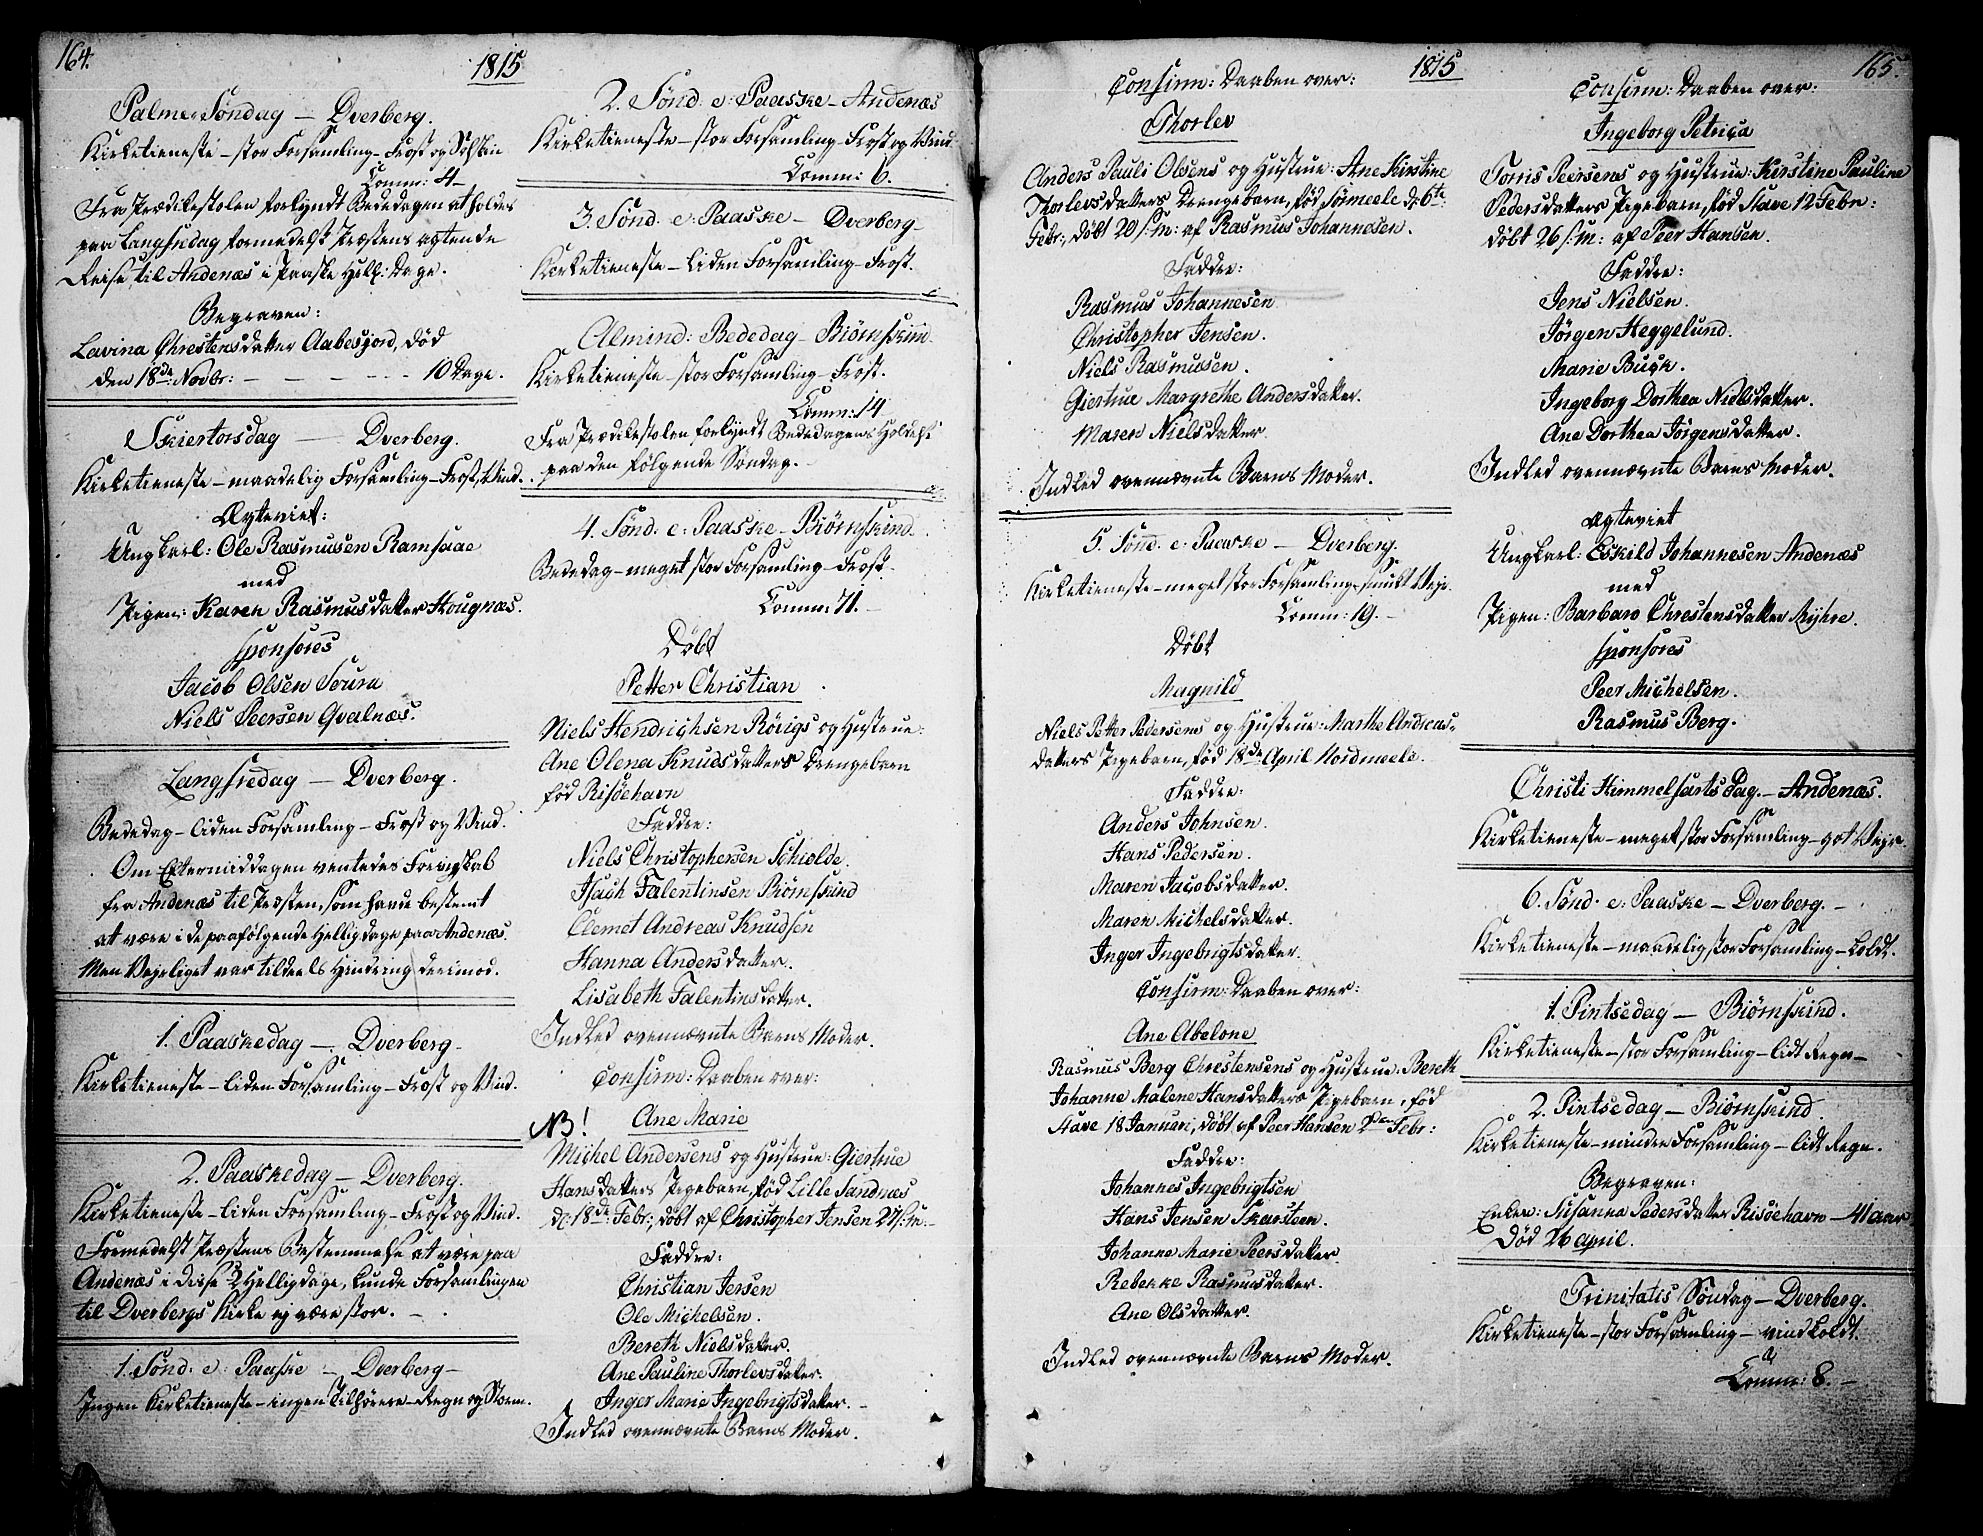 164.
1815
Palme Søndag — Dverberg.
Kirketieneste — stor Forsamling — Frost og Solskin
Comm: 4 —
Fra Prædikestolen forlyndt Bededagen at holdes
paa Langfredag formedelst Præstens agtende
Reise til Andenæs i Paaske Hell: Dage.
Begraven:
Lavina Chrestensdatter Aabesjord, død
den 18de Novbr: — — — — — 10 Dage.
Skiertorsdag — Dverberg.
Kirketieneste — maadelig Forsamling — Frost, Vind.
Ægteviet:
Ungkarl: Ole Rasmusen Ramsaae
med
Pigen: Karen Rasmusdatter Hougnæs.
Sponsores
Jacob Olsen Soura
Niels Peersen Qvalnæs.
Langfredag — Dverberg.
Bededag — liden Forsamling — Frost og Vind.
Om Eftermiddagen ventedes
fra Andenæs til Præsten, som havde bestemt
at være i de paafølgende Helligdage paa Andenæs.
Men Vejrliget var tildeels Hindring derimod.
1. Paaskedag — Dverberg —
Kirketieneste — liden Forsamling — Frost og Vind.
2. Paaskedag — Dverberg.
Kirketieneste — liden Forsamling — Frost og Vind.
Formedelst Præstens Bestemmelse at være paa
Andenæs i disse 2 Helligdage, kunde Forsamlingen
til Dverbergs Kirke ej være stor. —
1. Sønd. e: Paaske — Dverberg —
Ingen Kirketieneste — ingen Tilhørere — Regn og Storm.
2. Sønd. e: Paaske — Andenæs
Kirketieneste — stor Forsamling — Frost og Vind
Comm: 6.
3. Sønd. e. Paaske — Dverberg —
Kirketieneste — liden Forsamling — Frost.
Almind: Bededag — Biørnskinn.
Kirketieneste — stor Forsamling — Frost.
Comm: 14
Fra Prædikestolen forlyndt Bededagens Holdelse
paa den følgende Søndag. —
4. Sønd. e. Paaske — Biørnskind.
Bededag — meget stor Forsamling — Frost.
Comm: 71. —
Døbt
Petter Christian
Niels Hendrichsen Rörigs og Hustrue:
Ane Olena Knudsdatters Drengebarn
fød Risøehavn
Faddre:
Niels Christophersen Schiolde.
Isach Falentinsen Biørnskind
Clemet Andreas Knudsen
Hanna Andersdatter.
Lisabeth Falentinsdatter.
Indled ovennævnte Barns Moder.
Confirm: Daaben over:
NB! Ane Marie
Michel Andersens og Hustrue: Giertrue
Hansdatters Pigebarn, fød Lille Sandnæs
d: 18de Febr:, døbt af Christopher Jensen 27 s: m: —
Faddre:
Christian Jersen
Ole Michelsen.
Bereth Nielsdatter.
Ane Pauline Thorlevsdatter.
Inger Marie Ingebrigtsdatter. —
Indled ovennævnte Barns Moder.
1815
165.
Confirm: Daaben over:
Thorlev
Anders Pauli Olsens og Hustrue: Ane Kirstine
Thorlevsdatters Drengebarn, fød Sørmeele d: 6te
Febr:, døbt 20 s: m: af Rasmus Johannesen.
Faddre:
Rasmus Johannesen
Christopher Jensen.
Niels Rasmusen.
Giertrue Margrethe Andersdatter.
Maren Nielsdatter.
Indled ovennævnte Barns Moder.
5. Sønd. e: Paaske — Dverberg.
Kirketieneste — meget stor Forsamling — smukt Vejr.
Comm: 19. —
Døbt
Magnild
Niels Petter Pedersens og Hustrue: Marthe Andreas-
datters Pigebarn, fød 18de April Nordmeele.
Faddre:
Anders Johnsen.
Hans Pedersen.
Maren Jacobsdatter.
Maren Michelsdatter.
Inger Ingebrigtsdatter.
Confirm: Daaben over:
Ane Abelone
Rasmus Berg Chrestensens og Hustrue: Bereth
Johanne Malene Hansdatters Pigebarn, fød
Stave 18 Januari, døbt af Peer Hansen 2de Febr:
Faddre:
Johannes Ingebrigtsen
Hans Jensen Skarsteen.
Johanne Marie Peersdatter
Rebekke Rasmusdatter.
Ane Olsdatter.
Indled ovennævnte Barns Moder.
Confirm: Daaben over:
Ingeborg Petrica
Torris Peersens og Hustrue: Kirstine Pauline
Pedersdatters Pigebarn, fød Stave 12 Febr:
døbt 26 s: m: af Peer Hansen.
Faddre:
Jens Nielsen.
Jørgen Heggelund.
Marie Bugh.
Ingeborg Dorthea Nielsdatter.
Ane Dorthea Jørgensdatter.
Indled ovennævnte Barns Moder.
Ægteviet
Ungkarl: Eskild Johannesen Andenæs
med
Pigen: Barbaro Chrestensdatter Myhre.
Sponsores
Peer Michelsen.
Rasmus Berg.
Christi Himmelfarts Dag. — Andenæs.
Kirketieneste — meget stor Forsamling — got Vejr.
6. Sønd. e: Paaske — Dverberg. —
Kirketieneste — maadelig stor Forsamling — Koldt.
1. Pintsedag — Biørnskind.
Kirketieneste — stor Forsamling — lidt Regn —
2. Pintsedag — Biørnskind.
Kirketieneste — mindre Forsamling — lidt Regn.
Begraven:
Enken: Susanna Pedersdatter Risøehavn — 41 aar
Død 26 April.
Trinitatis Søndag — Dverberg.
Kirketieneste — stor Forsamling — vind koldt.
Comm: 8. —